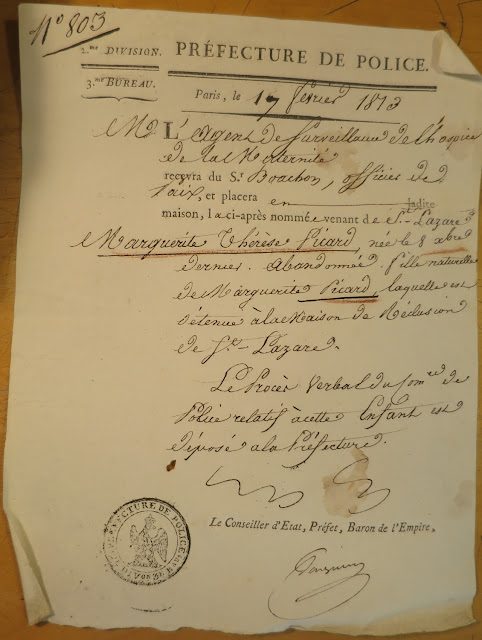 N° 803
2.me DIVISION.
PRÉFECTURE DE POLICE.
3.me BUREAU.
Paris, le 17 février 1813
M L'Agent de surveillance de l'hospice
de la Maternité
recevra du Sr. Boachon, officier de
Paix, et placera en ladite
maison, la ci-après nommée venant de St. Lazare
Marguerite Thérèse Picard, née le 8 xbre
dernier. abandonnée. fille naturelle
de Marguerite Picard, laquelle est
détenue à la Maison de Réclusion
de St. Lazare.
Le Procès Verbal du Com.re de
Police relatif à cette Enfant est
déposé à la Préfecture.
Le Conseiller d'Etat, Préfet, Baron de l'Empire,
PRÉFECTURE DE POLICE